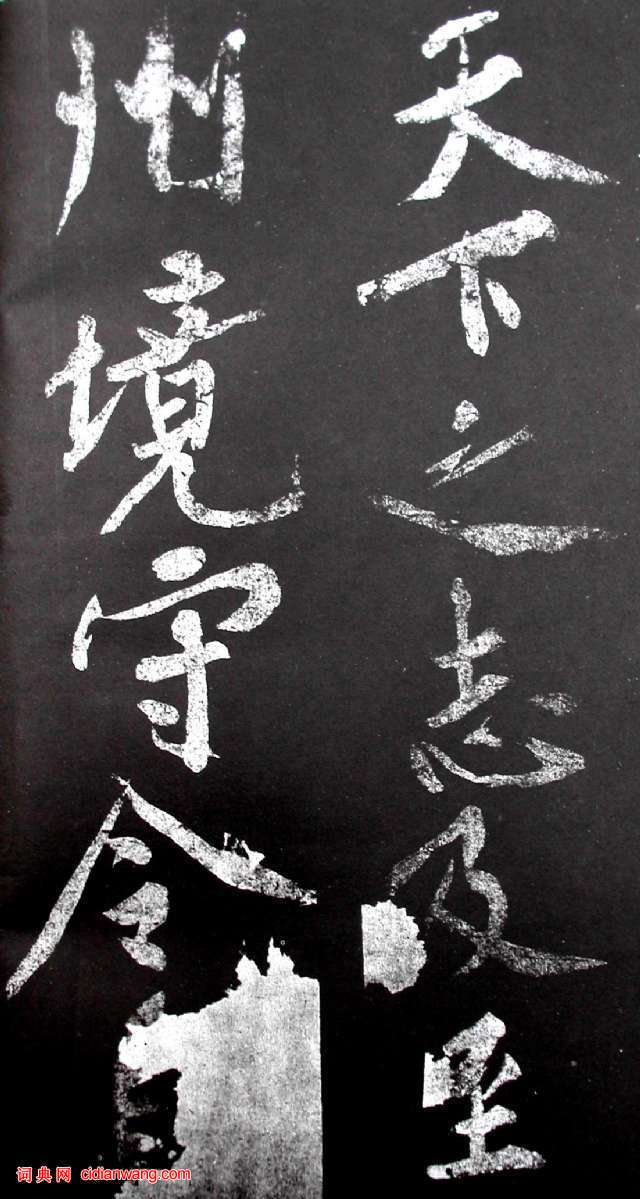 天下之志及至
州境守令
词典网 cidianwang.com